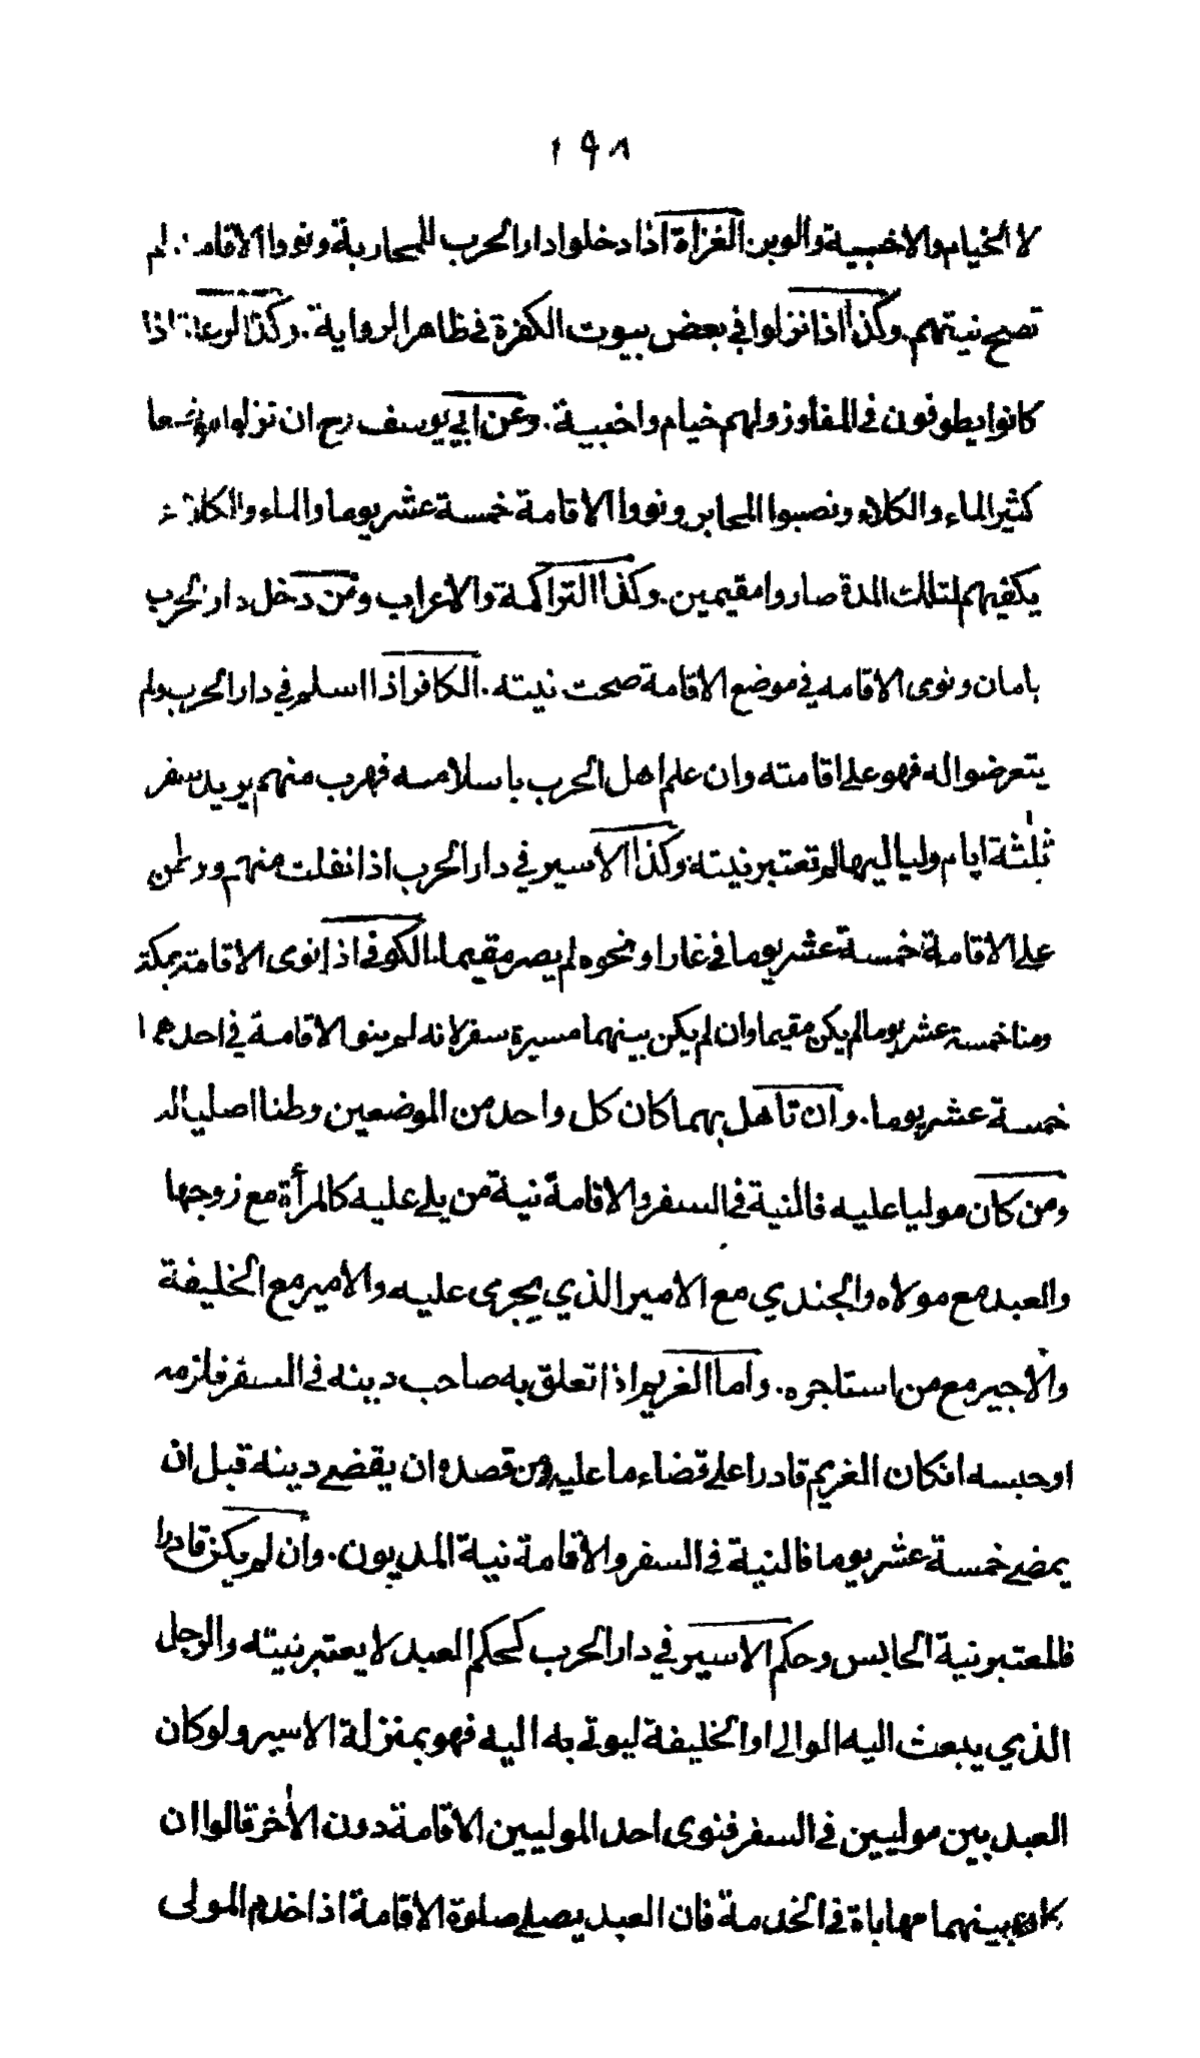 ١٩٨
لا الخيام والاخبية والوبر. الغزاة اذا دخلوا دار الحرب للمحاربة ونووا الاقامة. لم
تصح نيتهم. وكذا اذا نزلوا في بعض بيوت الكفرة في ظاهر الرواية. وكذا الرعاة اذا
كانوا يطوفون في المفاوز ولهم خيام واخبية. وعن ابي يوسف رح ان نزلوا موضعا
كثير الماء والكلاء ونصبوا المحابر ونووا الاقامة خمسة عشر يوما والماء والكلاء
يكفيهم لتلك المدة صاروا مقيمين. وكذا التراكمة والاعراب ومن دخل دار الحرب
بامان ونوى الاقامه في موضع الاقامة صحت نيته. الكافر اذا اسلم في دار الحرب ولم
يتعرضوا له فهو على اقامته وان علم اهل الحرب باسلامه فهرب منهم يريد سفر
ثلثة ايام ولياليها لم تعتبر نيته وكذا الاسير في دار الحرب اذا نفلت منهم ووطن
على الاقامة خمسة عشر يوما في غار او نحوه لم يصر مقيما. الكوفي اذا نوى الاقامة بمكة
ومنا خمسة عشر يوما لم يكن مقيما وان لم يكن بينهما مسيرة سفر لانه لم ينو الاقامة في احدهما
خمسة عشر يوما. وان تاهل بهما كان كل واحد من الموضعين وطنا اصليا له
ومن كان موليا عليه فالنية في السفر والاقامة نية من يلي عليه كالمرأة مع زوجها
والعبد مع مولاه والجندي مع الامير الذي يجرى عليه والامير مع الخليفة
والاجير مع من استاجره. واما الغريم اذا تعلق به صاحب دينه في السفر فلزمه
او حبسه انكان الغريم قادرا على قضاء ما عليه ومن قصده ان يقضي دينه قبل ان
يمضي خمسة عشر يوما فالنية في السفر والاقامة نية المديون. وان لم يكن قادرا
فالمعتبر نية الحابس وحكم الاسير في دار الحرب كحكم العبد لا يعتبر نيته والرجل
الذي يبعث اليه الوالي او الخليفة ليوتى به اليه فهو بمنزلة الاسير ولو كان
العبد بين موليين في السفر فنوى احد الموليين الاقامة دون الأخر قالوا ان
كان بينهما مهاياة في الخدمة فان العبد يصلي صلوة الاقامة اذا خدم المولى